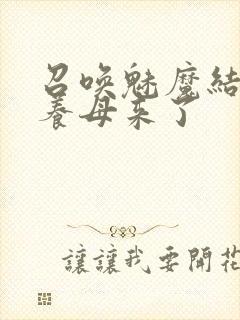 召唤魅魔結
養母来了
讓讓我要開花